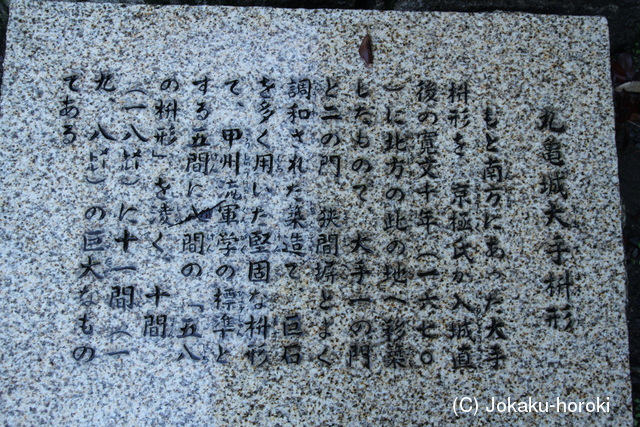 丸亀城大手枡形
もと南方にあった大手
枡形を、京極氏が入城直
後の寛文十年(一六七〇
)に北方の此の地へ移築
したもので、大手一の門
と二の門、狭間塀とよく
調和された築造で、巨石
を多く用いた堅固な枡形
で、甲州流軍学の標準と
する五間に八間の「五八
の枡形」を凌ぐ、十間
(一八㍍)に十一間(一
九、八㍍)の巨大なもの
である
(C) Jokaku-horoki